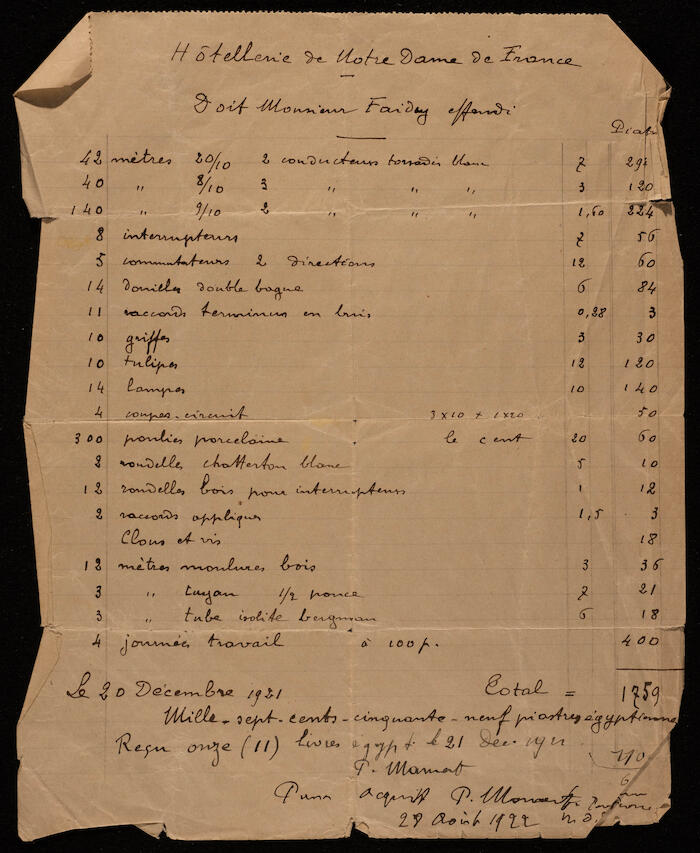 Hôtellerie de Notre Dame de France
Doit Monsieur Faidy effendi
Piast
42 mètres 20/10 2 conducteurs torsadés blanc 7 29
40 " 8/10 3 " " " 3 120
140 " 9/10 2 " " " 1,60 224
8 interrupteurs 7 56
5 commutateurs 2 directions 12 60
14 douilles double bague 6 84
11 raccords terminus en buis 0,28 3
10 griffes 3 30
10 tulipes 12 120
14 lampes 10 140
4 coupes-circuit 3 x 10 + 1 x 20 50
300 poulies porcelaine le cent 20 60
2 rondelles chatterton blanc 5 10
12 rondelles bois pour interrupteurs 1 12
2 raccords appliques 1,5 3
Clous et vis 18
12 mètres moulures bois 3 36
3 " tuyau 1/2 pouce 7 21
3 " tube isolite bergman 6 18
4 journées travail à 100 p. 400
Le 20 Décembre 1921 Total = 1759
Mille-sept-cents-cinquante-neuf piastres égyptienne
Reçu onze (11) livres égypt. le 21 Dec. 1921
P. Mamert
Pour acquit P. Mamert
28 Août 1922